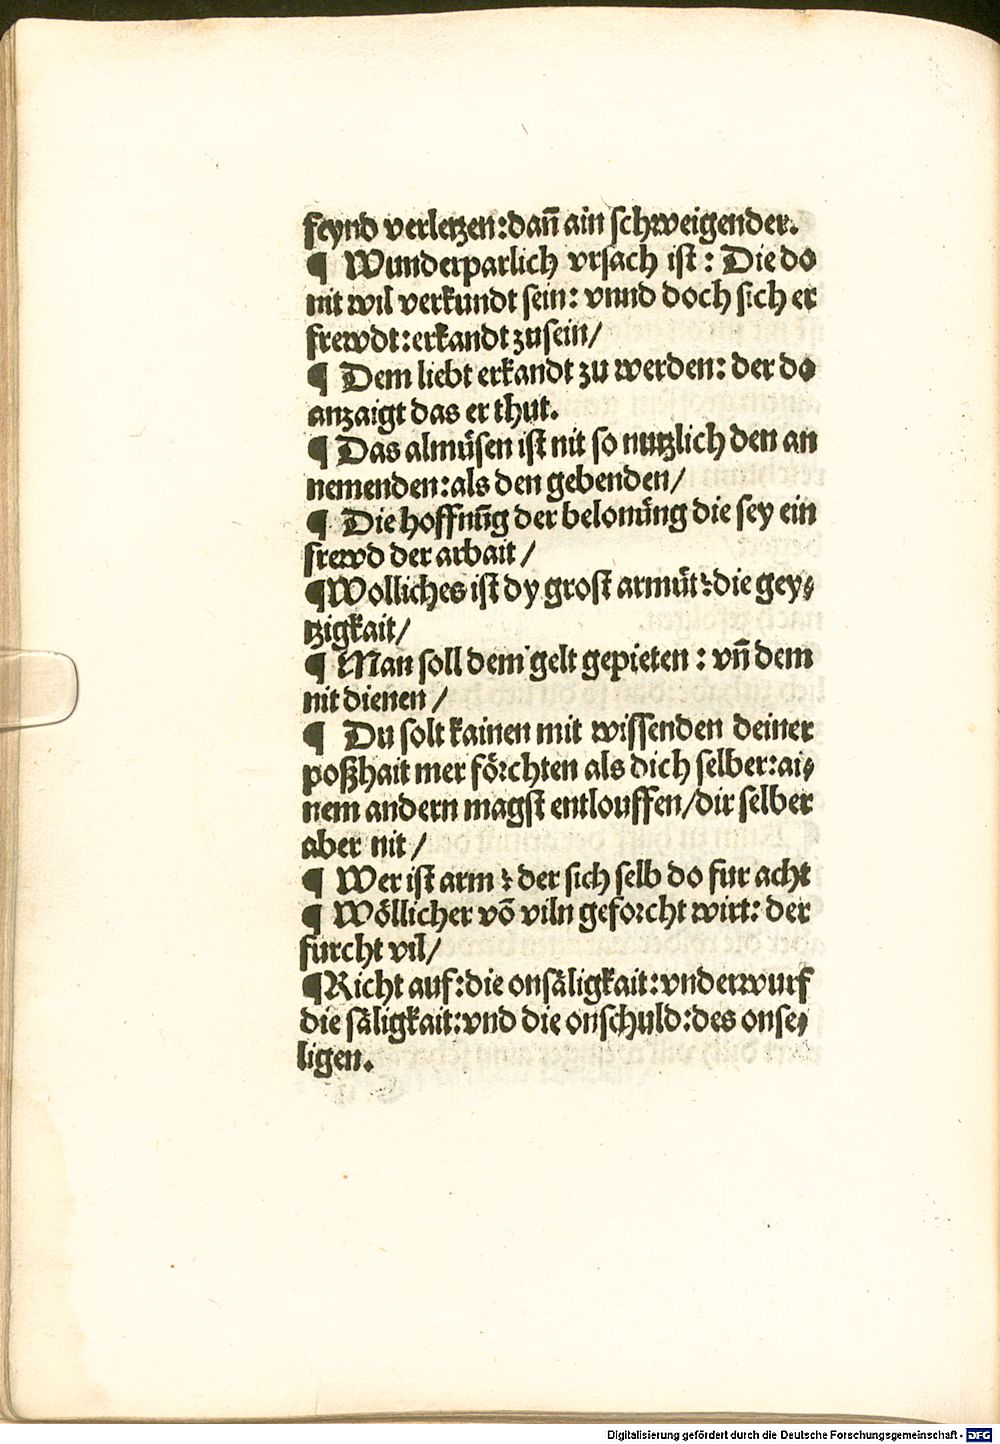 feynd verletzen:dañ ain schweigender.
¶ Wunderparlich vrsach ist: Die do
nit wil verkundt sein: vnnd doch sich er
frewdt:erkandt zu sein/
¶ Dem liebt erkandt zu werden: der do
anzaigt das er thut.
¶ Das almůsen ist nit so nutzlich den an
nemenden:als den gebenden/
¶ Die hoffnūg der belonůng die sey ein
frewd der arbait /
¶Wolliches ist dy grost armůt?die gey⸗
tzigkait/
¶ Man soll dem gelt gepieten : vñ dem
nit dienen /
¶ Du solt kainen mit wissenden deiner
poßhait mer förchten als dich selber:ai⸗
nem andern magst entlouffen/dir selber
aber nit /
¶ Wer ist arm ? der sich selb do fur acht
¶ Wöllicher vō viln geforcht wirt: der
furcht vil/
¶Richt auf:die onsäligkait:vnderwurf
die säligkait:vnd die onschuld:des onse⸗
ligen.
Digitalisierung gefördert durch die Deutsche Forschungsgemeinschaft - DFG